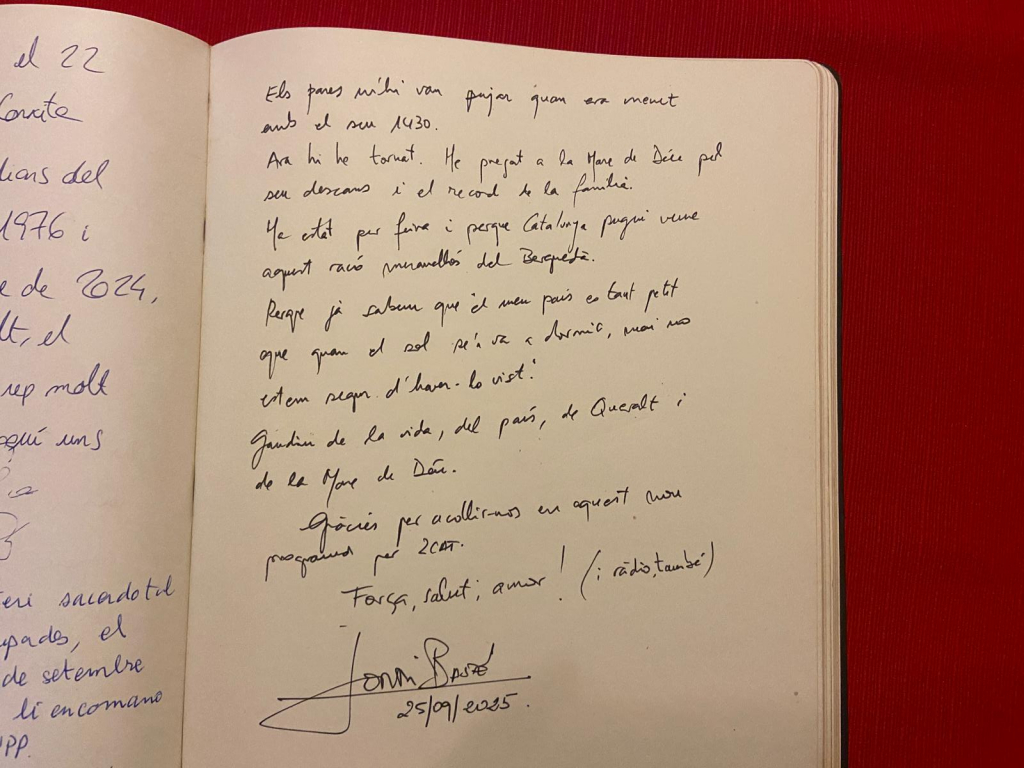 el 22
licns del
1976 i
e de 2024,
lt, el
rep molt
aquí uns
eri sacerdotal
upades, el
de setembre
li encomano
PP.
Els pares m'hi van pujar quan era menut
amb el seu 1430.
Ara hi he tornat. He pregat a la Mare de Déu pel
seu descans i el record de la família.
He estat per feina i perque Catalunya pugui veure
aquest racó meravellós del Berguedà.
Perque ja sabem que "el meu país es tant petit
que quan el sol se'n va a dormir, mai no
estem segur d'haver-lo vist."
Gaudiu de la vida, del país, de Queralt i
de la Mare de Déu.
Gràcies per acollir-nos en aquest nou
programa per 2CAT.
Força, salut i amor! (i ràdio, també)
Jordi Basté
25/09/2025.